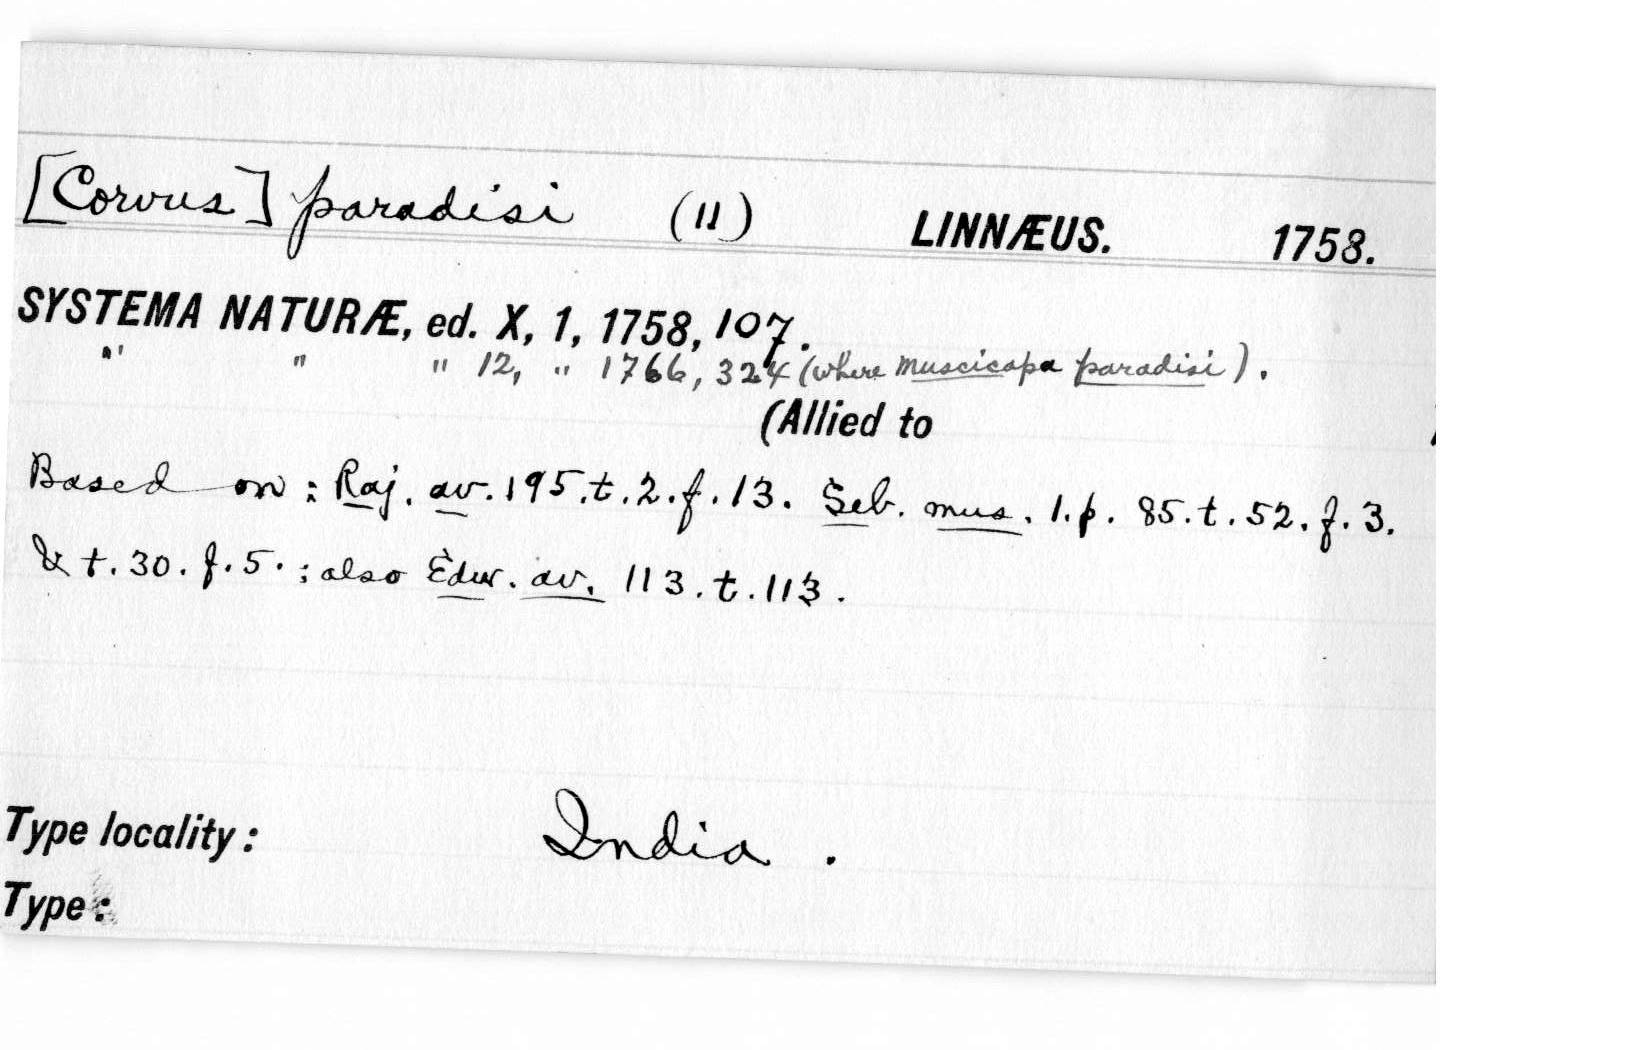 [Corvus] paradisi (11) LINNÆUS. 1758.
SYSTEMA NATURÆ, ed. X, 1, 1758, 107.
" " " 12, " 1766, 324 (where Muscicapa paradisi).
(Allied to )
Based on : Raj. av. 195. t. 2. f. 13. Seb. mus. 1. p. 85. t. 52. f. 3.
& t. 30. f. 5. ; also Edw. av. 113. t. 113.
Type locality : India .
Type :